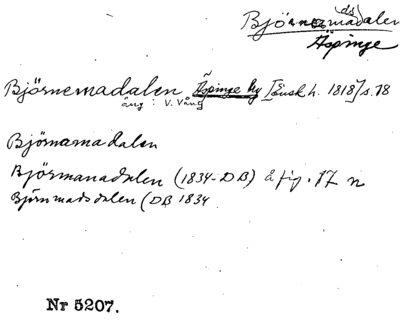 ds
Björnemadalen
Äspinge
Björnemadalen Äspinge by [Önsk h. 1818] s. 18
äng: V. Vång
Björnamadalen
Björmanadalen (1834-DB) å fig. 17 n
Björnmadsdalen (DB 1834
Nr 5207.